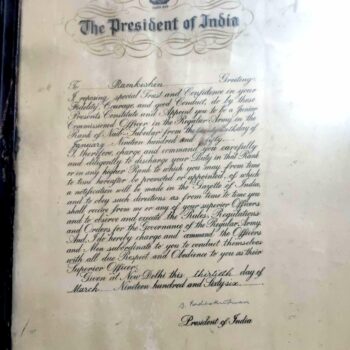 The President of India
To Ramkishen Greeting:
I reposing special Trust and Confidence in your
Fidelity, Courage, and good Conduct, do by these
Presents Constitute and Appoint you to be a Junior
Commissioned Officer in the Regular Army in the
Rank of Naib-Subedar from the day of
January Nineteen hundred and
I therefore charge and command you carefully
and diligently to discharge your Duty in that Rank
or in any higher Rank to which you may from time
to time hereafter be promoted or appointed, of which
a notification will be made in the Gazette of India,
and to obey such directions as from time to time you
shall receive from me or any of your superior Officers
and to observe and execute the Rules, Regulations
and Orders for the Governance of the Regular Army.
And I do hereby charge and command the Officers
and Men subordinate to you to conduct themselves
with all due Respect and Obedience to you as their
Superior Officer.
Given at New Delhi this thirtieth day of
March Nineteen hundred and Sixty-six
President of India